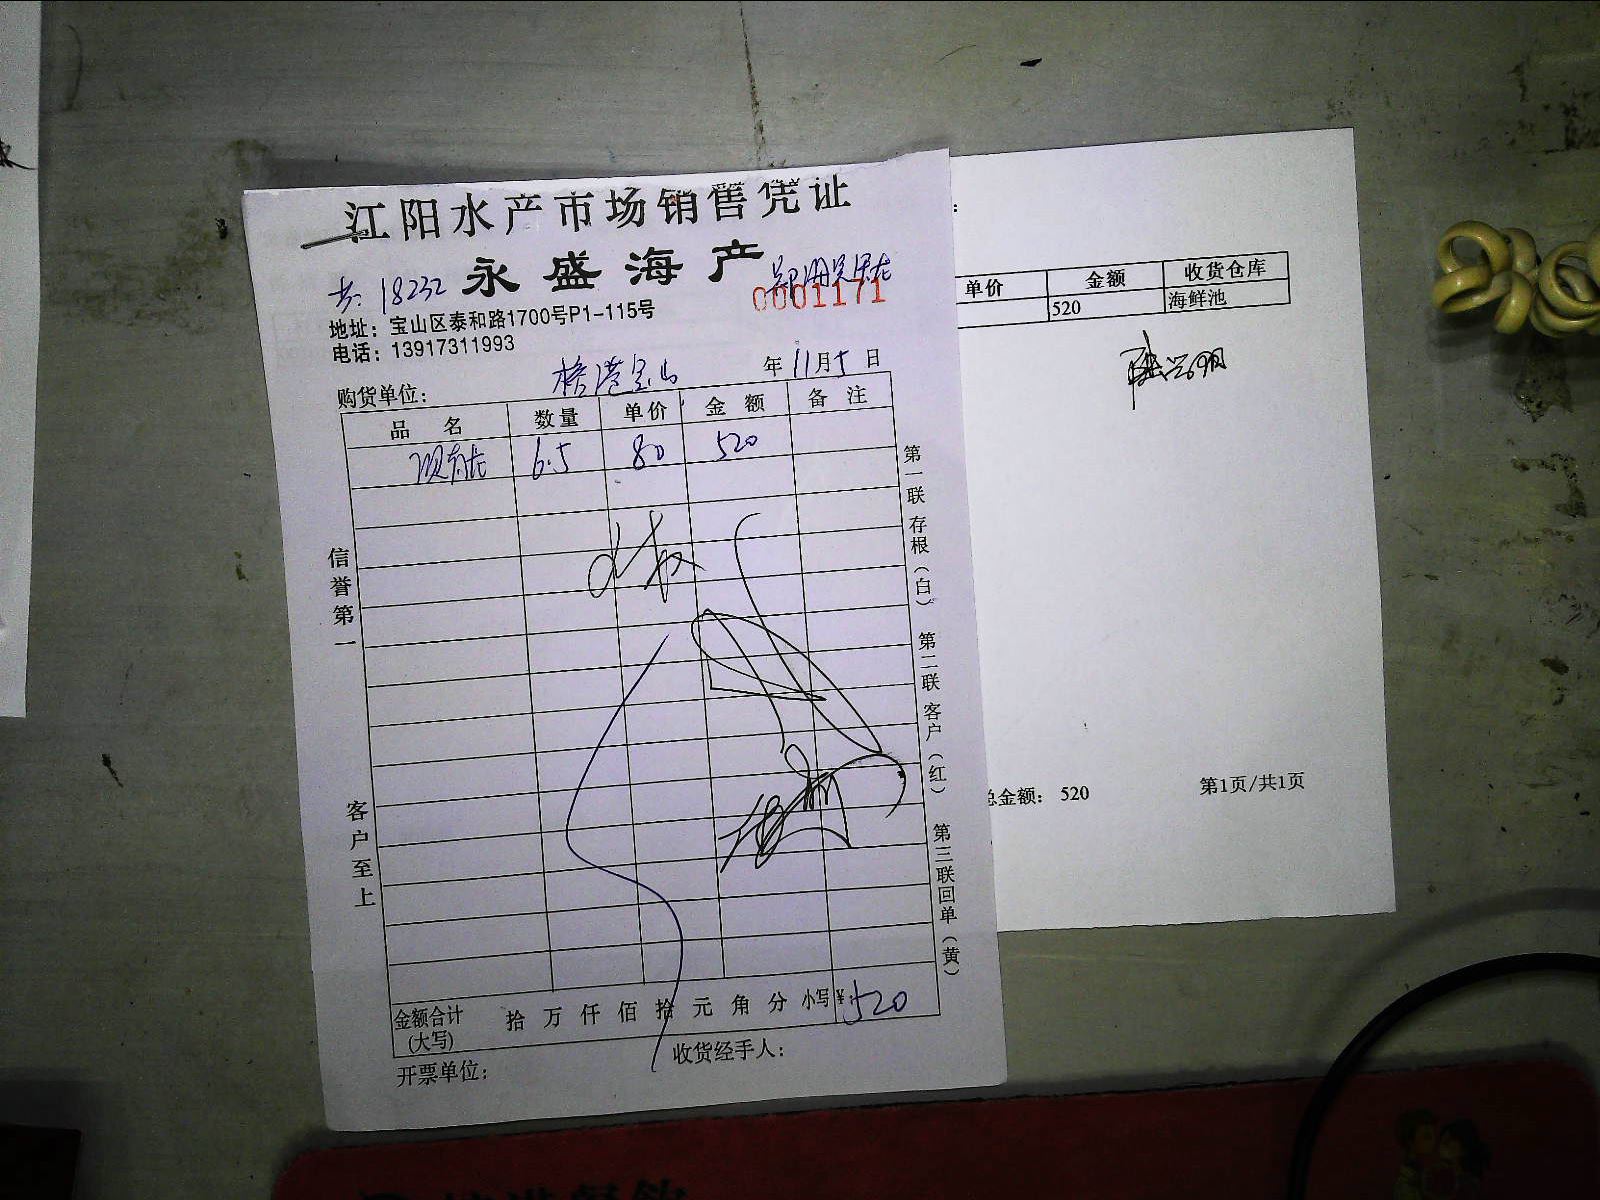 江阳水产市场销售凭证
永盛海产
18232
0001171
地址：宝山区泰和路1700号P1-115号
电话：13917311993
购货单位： 港宝山 年11月5日
品名 数量 单价 金额 备注
6.5 80 520
信誉第一
客户至上
第一联存根（白） 第二联客户（红） 第三联回单（黄）
金额合计(大写) 拾 万 仟 佰 拾 元 角 分 小写¥：520
开票单位： 收货经手人：
单价 金额 收货仓库
520 海鲜池
总金额： 520 第1页/共1页